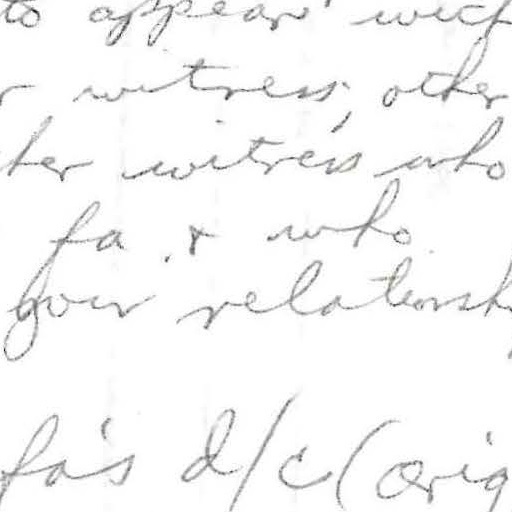 to appear with
r witness, other
her witness who
fa. & who
your relationsh
fa's d/c (orig